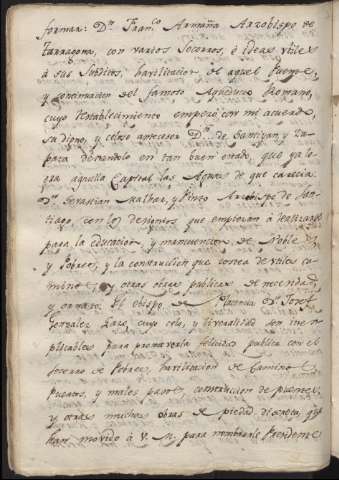 formar: Dn. Franco. Armaña Arzobispo de
Tarragona, con varios Socorros, è ideas utiles
à sus Subditos, havilitacion de aquel Puerto,
y continuacion del famoso Aqueducto Romano,
cuyo restablecimiento empezó con mi acuerdo
su digno, y celoso antecesor Dn. de Santiyan, y
dexandolo en tan buen estado, que ya lo
gra aquella Capital las Aguas de que carecia.
Dn. Sebastian Malbar, y Pinto Arzobispo de San-
tiago, con los desinios que empiezan à realizarse
para la educacion, y manutencion de Nobles
y Pobres, y la construccion que costea de utiles ca-
minos, y otras obras publicas de necesidad,
y ornato: El Obispo de Plasencia Dn. Josef
Gonzalez Laso, cuyo celo, y liveralidad son ines-
plicables para promoverla felicidad publica con el
socorro de Pobres, havilitacion de Caminos,
Puertos, y malos pasos, construccion de puentes,
y otras muchas obras de piedad discreta, que
han movido à V. M. para nombrarle Presidente